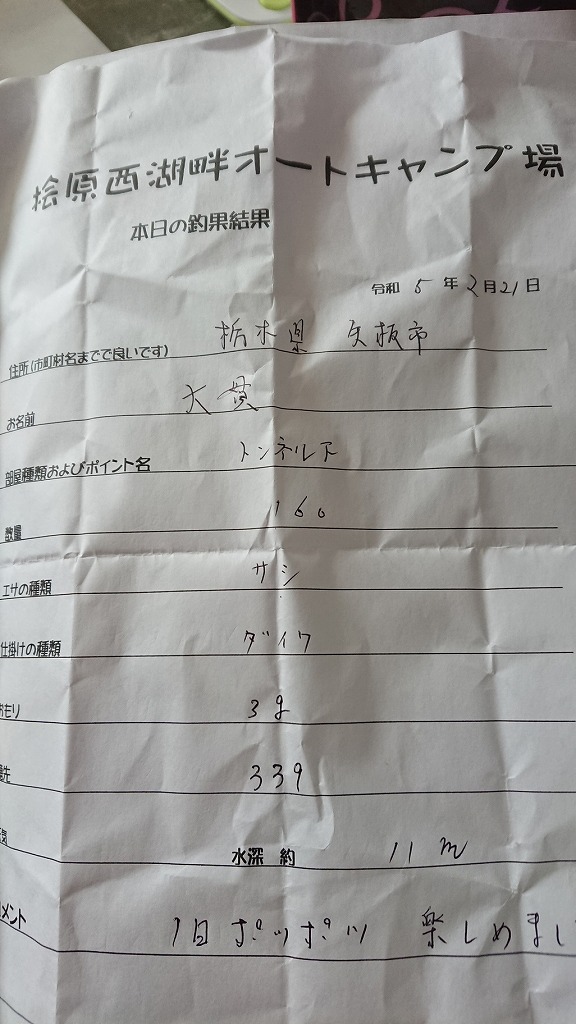 桧原西湖畔オートキャンプ場
本日の釣果結果
令和 5 年 2月21日
住所(市町村名までで良いです) 栃木県 矢板市
お名前 大貫
部屋種類およびポイント名 トンネル下
数量 160
エサの種類 サシ
仕掛けの種類 ダイワ
おもり 3g
穂先 339
気 水深 約 11 m
メント 1日 ポツポツ 楽しめまし